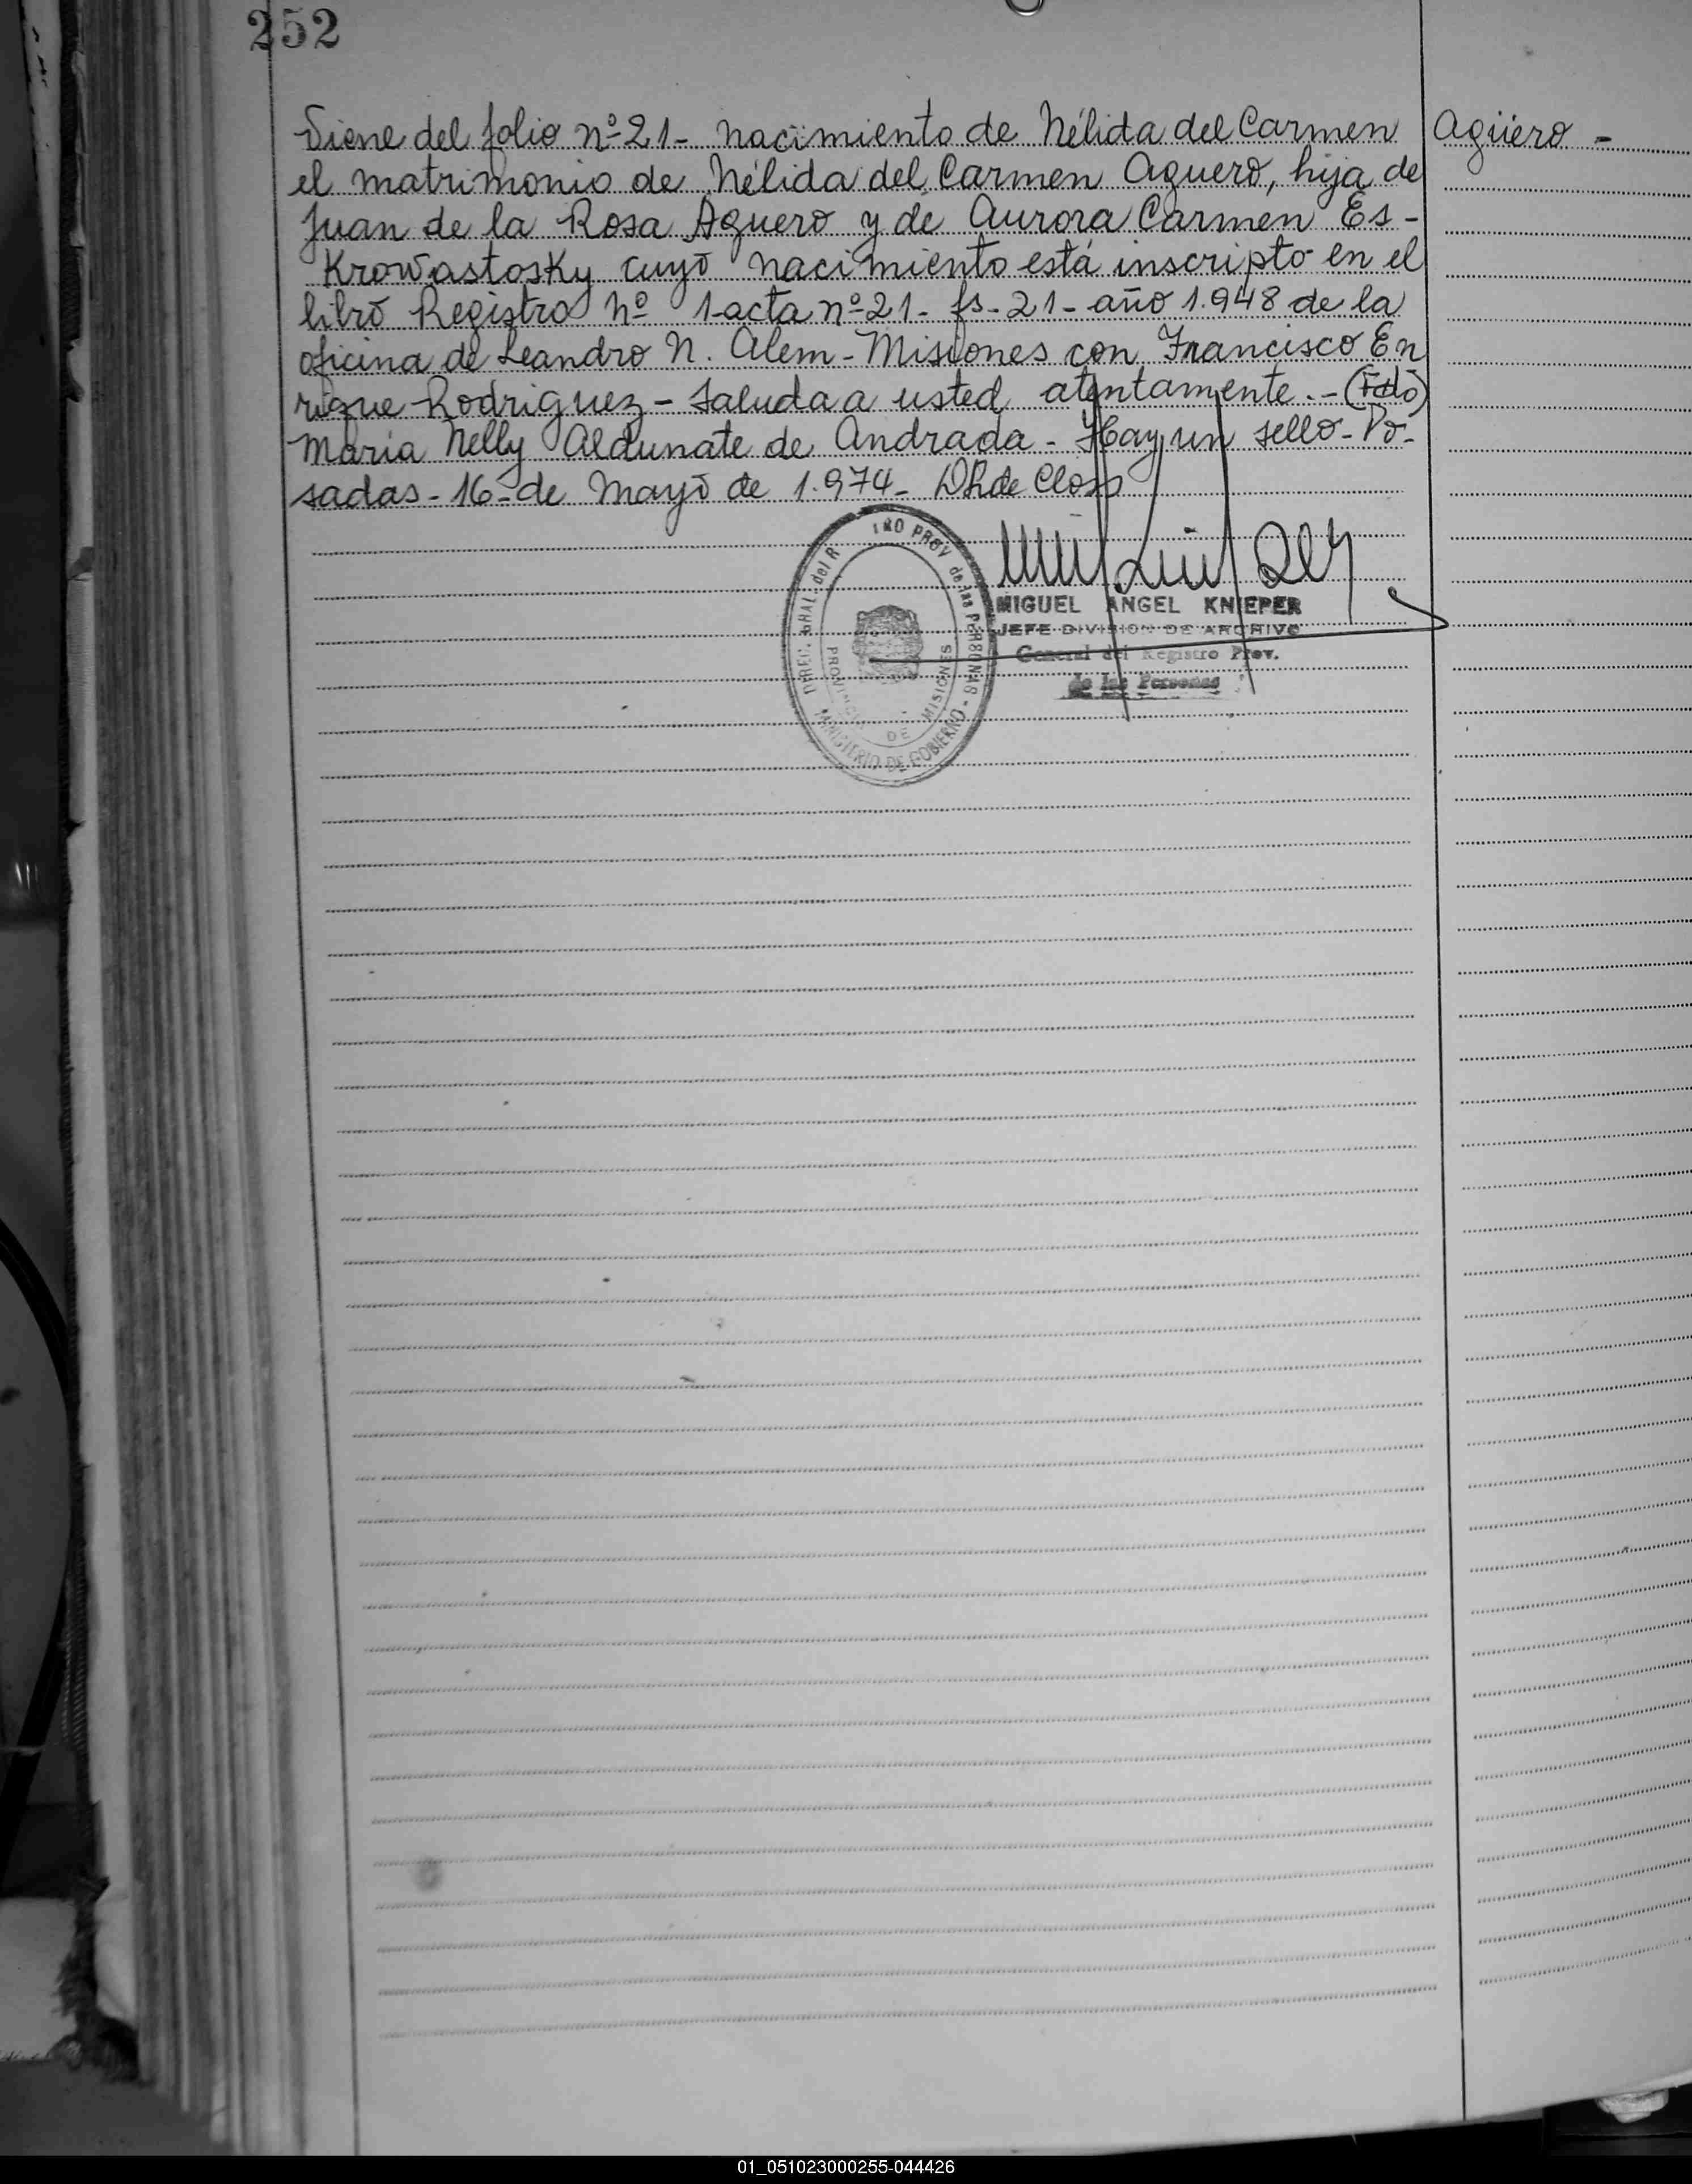 252
Viene del folio nº 21- nacimiento de Nélida del Carmen Agüero -
el matrimonio de Nélida del Carmen Aguero, hija de
Juan de la Rosa Aguero y de Aurora Carmen Es-
Krowastosky cuyo nacimiento está inscripto en el
libro Registro nº 1-acta nº 21- fs- 21- año 1.948 de la
oficina de Leandro N. Alem - Misiones con Francisco En
rique Rodriguez - saluda a usted atentamente.- (Fdo)
Maria Nelly Aldunate de Andrada - Hay un sello - Po-
sadas - 16 - de Mayo de 1.974 - DR de Closs
DIREC. GRAL. del R PROV de las PERSONAS - MINISTERIO DE GOBIERNO
PROVINCIA DE MISIONES
MIGUEL ANGEL KNIEPER
JEFE DIVISION DE ARCHIVO
General del Registro Prov.
de las Personas
01_051023000255-044426